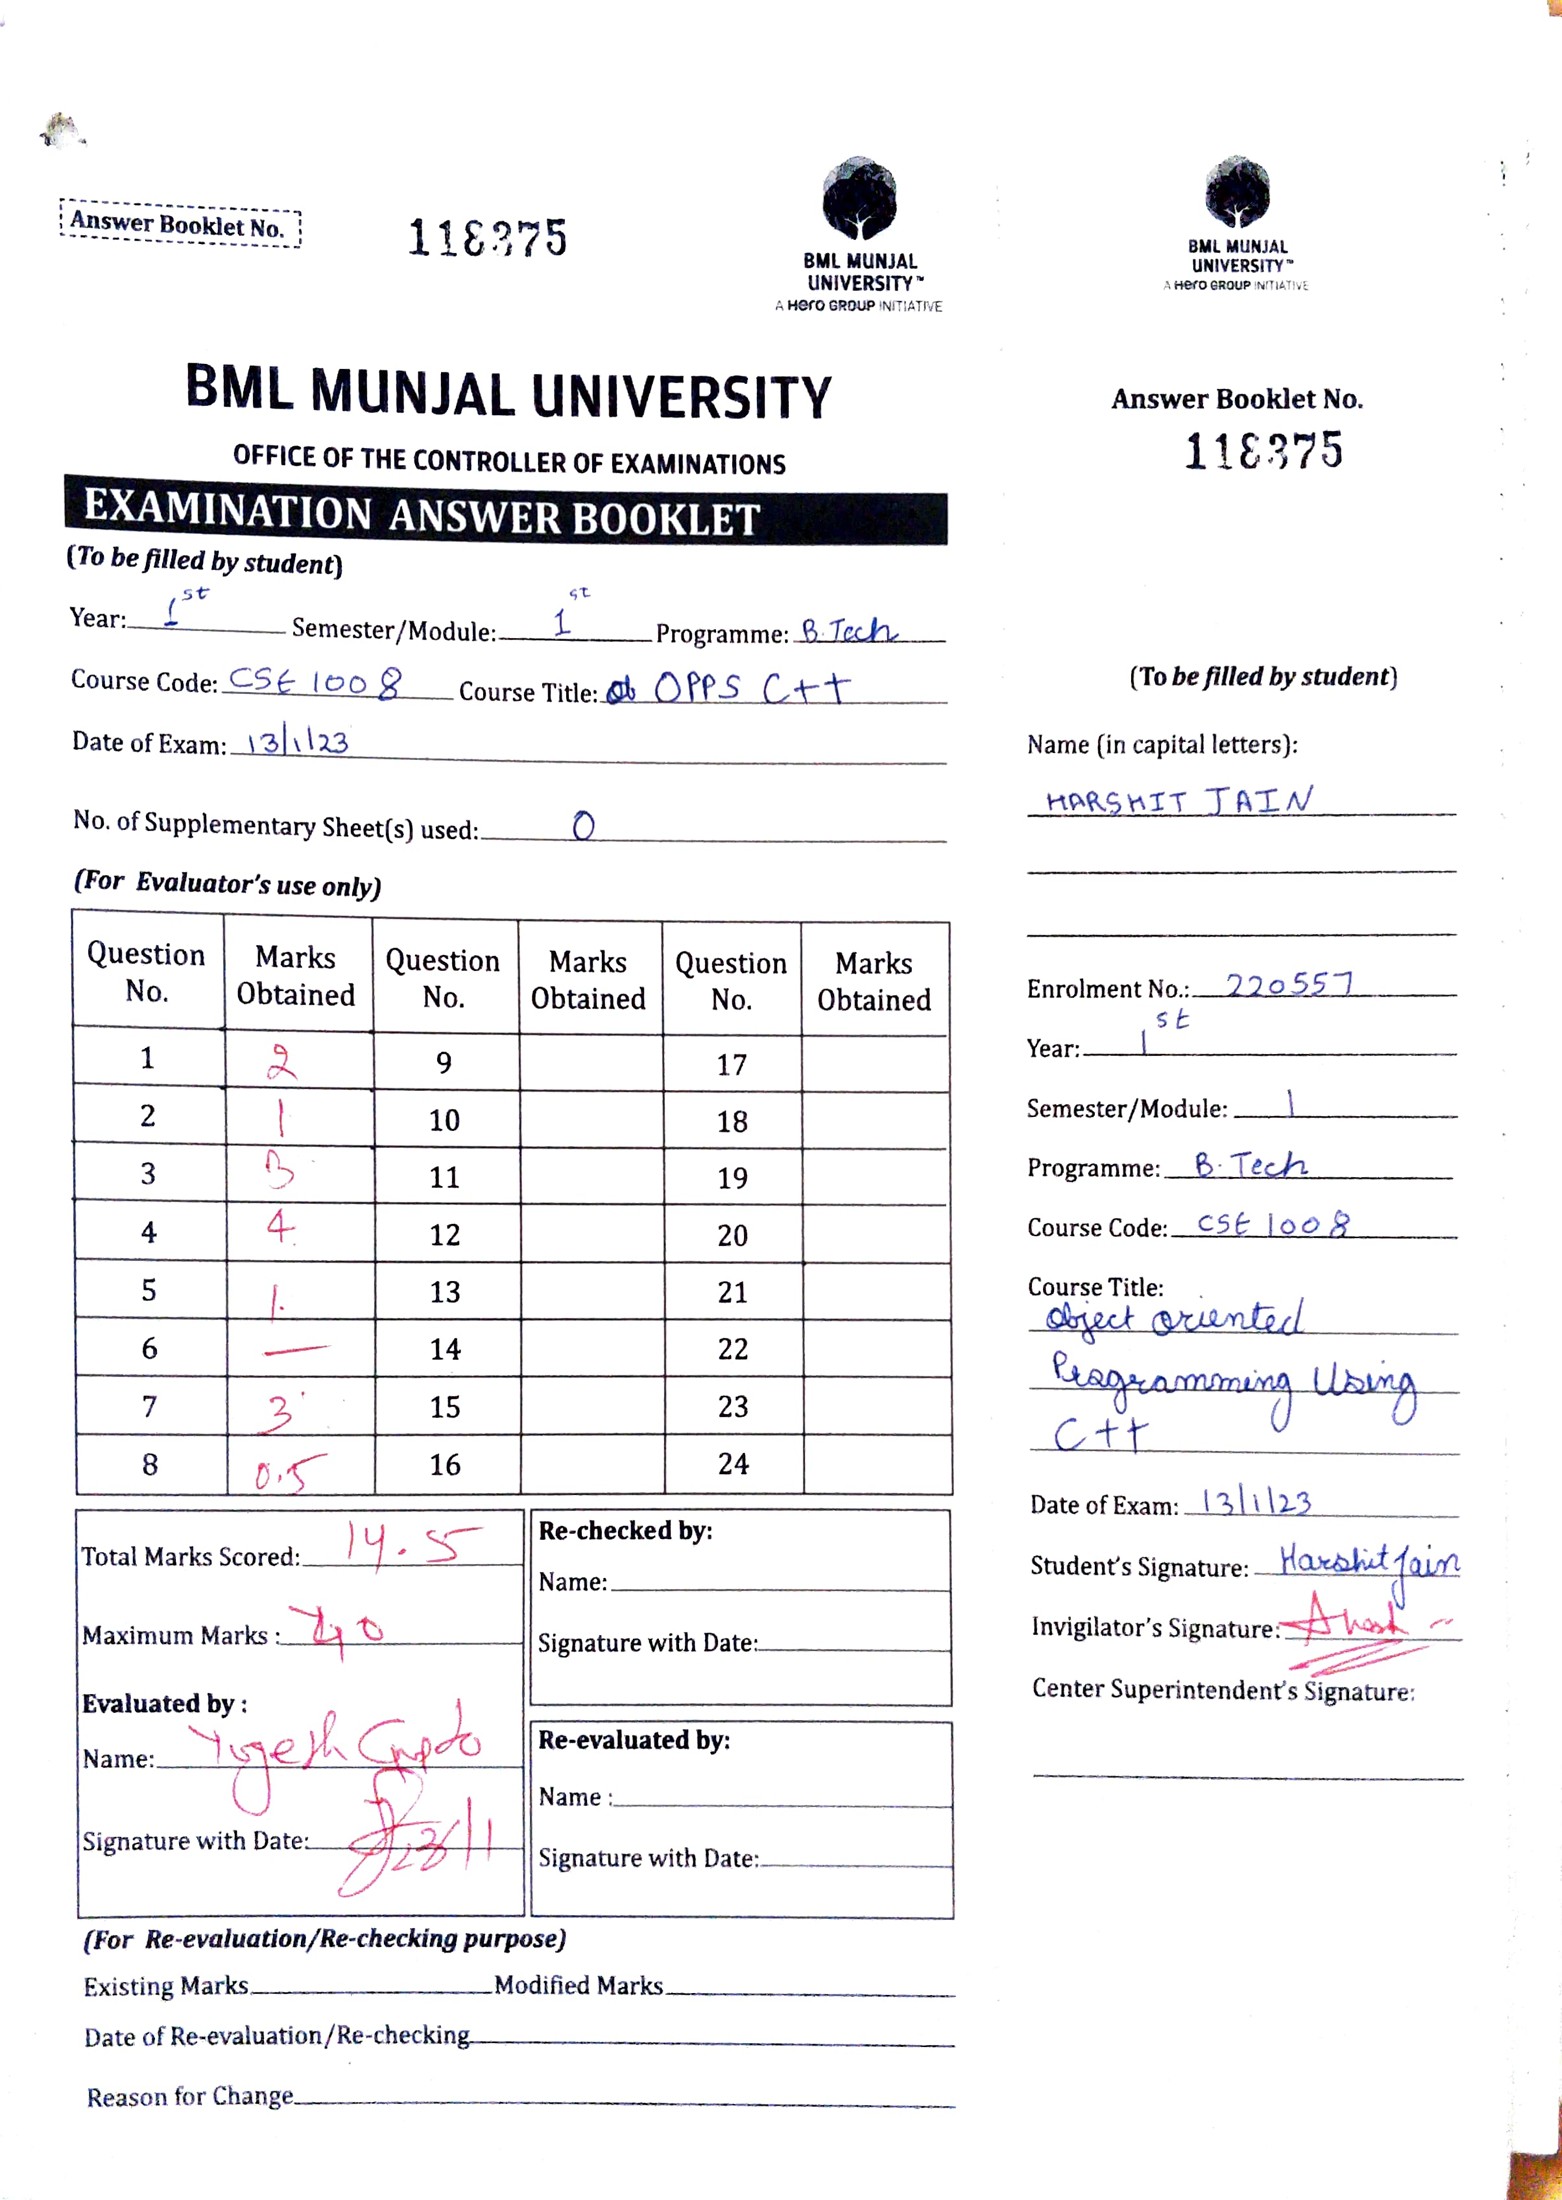 Answer Booklet No.
118375
BML MUNJAL
UNIVERSITY™
A Hero GROUP INITIATIVE
BML MUNJAL UNIVERSITY
OFFICE OF THE CONTROLLER OF EXAMINATIONS
EXAMINATION ANSWER BOOKLET
(To be filled by student)
Year: 1st Semester/Module: 1st Programme: B.Tech
Course Code: CSE 1008 Course Title: OPPS C++
Date of Exam: 13/1/23
No. of Supplementary Sheet(s) used: 0
(For Evaluator's use only)
Question No. Marks Obtained Question No. Marks Obtained Question No. Marks Obtained
1 2 9 17
2 1 10 18
3 3 11 19
4 4 12 20
5 1. 13 21
6 — 14 22
7 3 15 23
8 0.5 16 24
Total Marks Scored: 14.5
Maximum Marks : 40
Evaluated by :
Name: Yogesh Gupta
Signature with Date: 23/1
Re-checked by:
Name:
Signature with Date:
Re-evaluated by:
Name :
Signature with Date:
(For Re-evaluation/Re-checking purpose)
Existing Marks Modified Marks
Date of Re-evaluation/Re-checking
Reason for Change
BML MUNJAL
UNIVERSITY™
A Hero GROUP INITIATIVE
Answer Booklet No.
118375
(To be filled by student)
Name (in capital letters):
HARSHIT JAIN
Enrolment No.: 220557
Year: 1st
Semester/Module: 1
Programme: B.Tech
Course Code: CSE 1008
Course Title:
object oriented
Programming Using
C++
Date of Exam: 13/1/23
Student's Signature: Harshit Jain
Invigilator's Signature:
Center Superintendent's Signature: